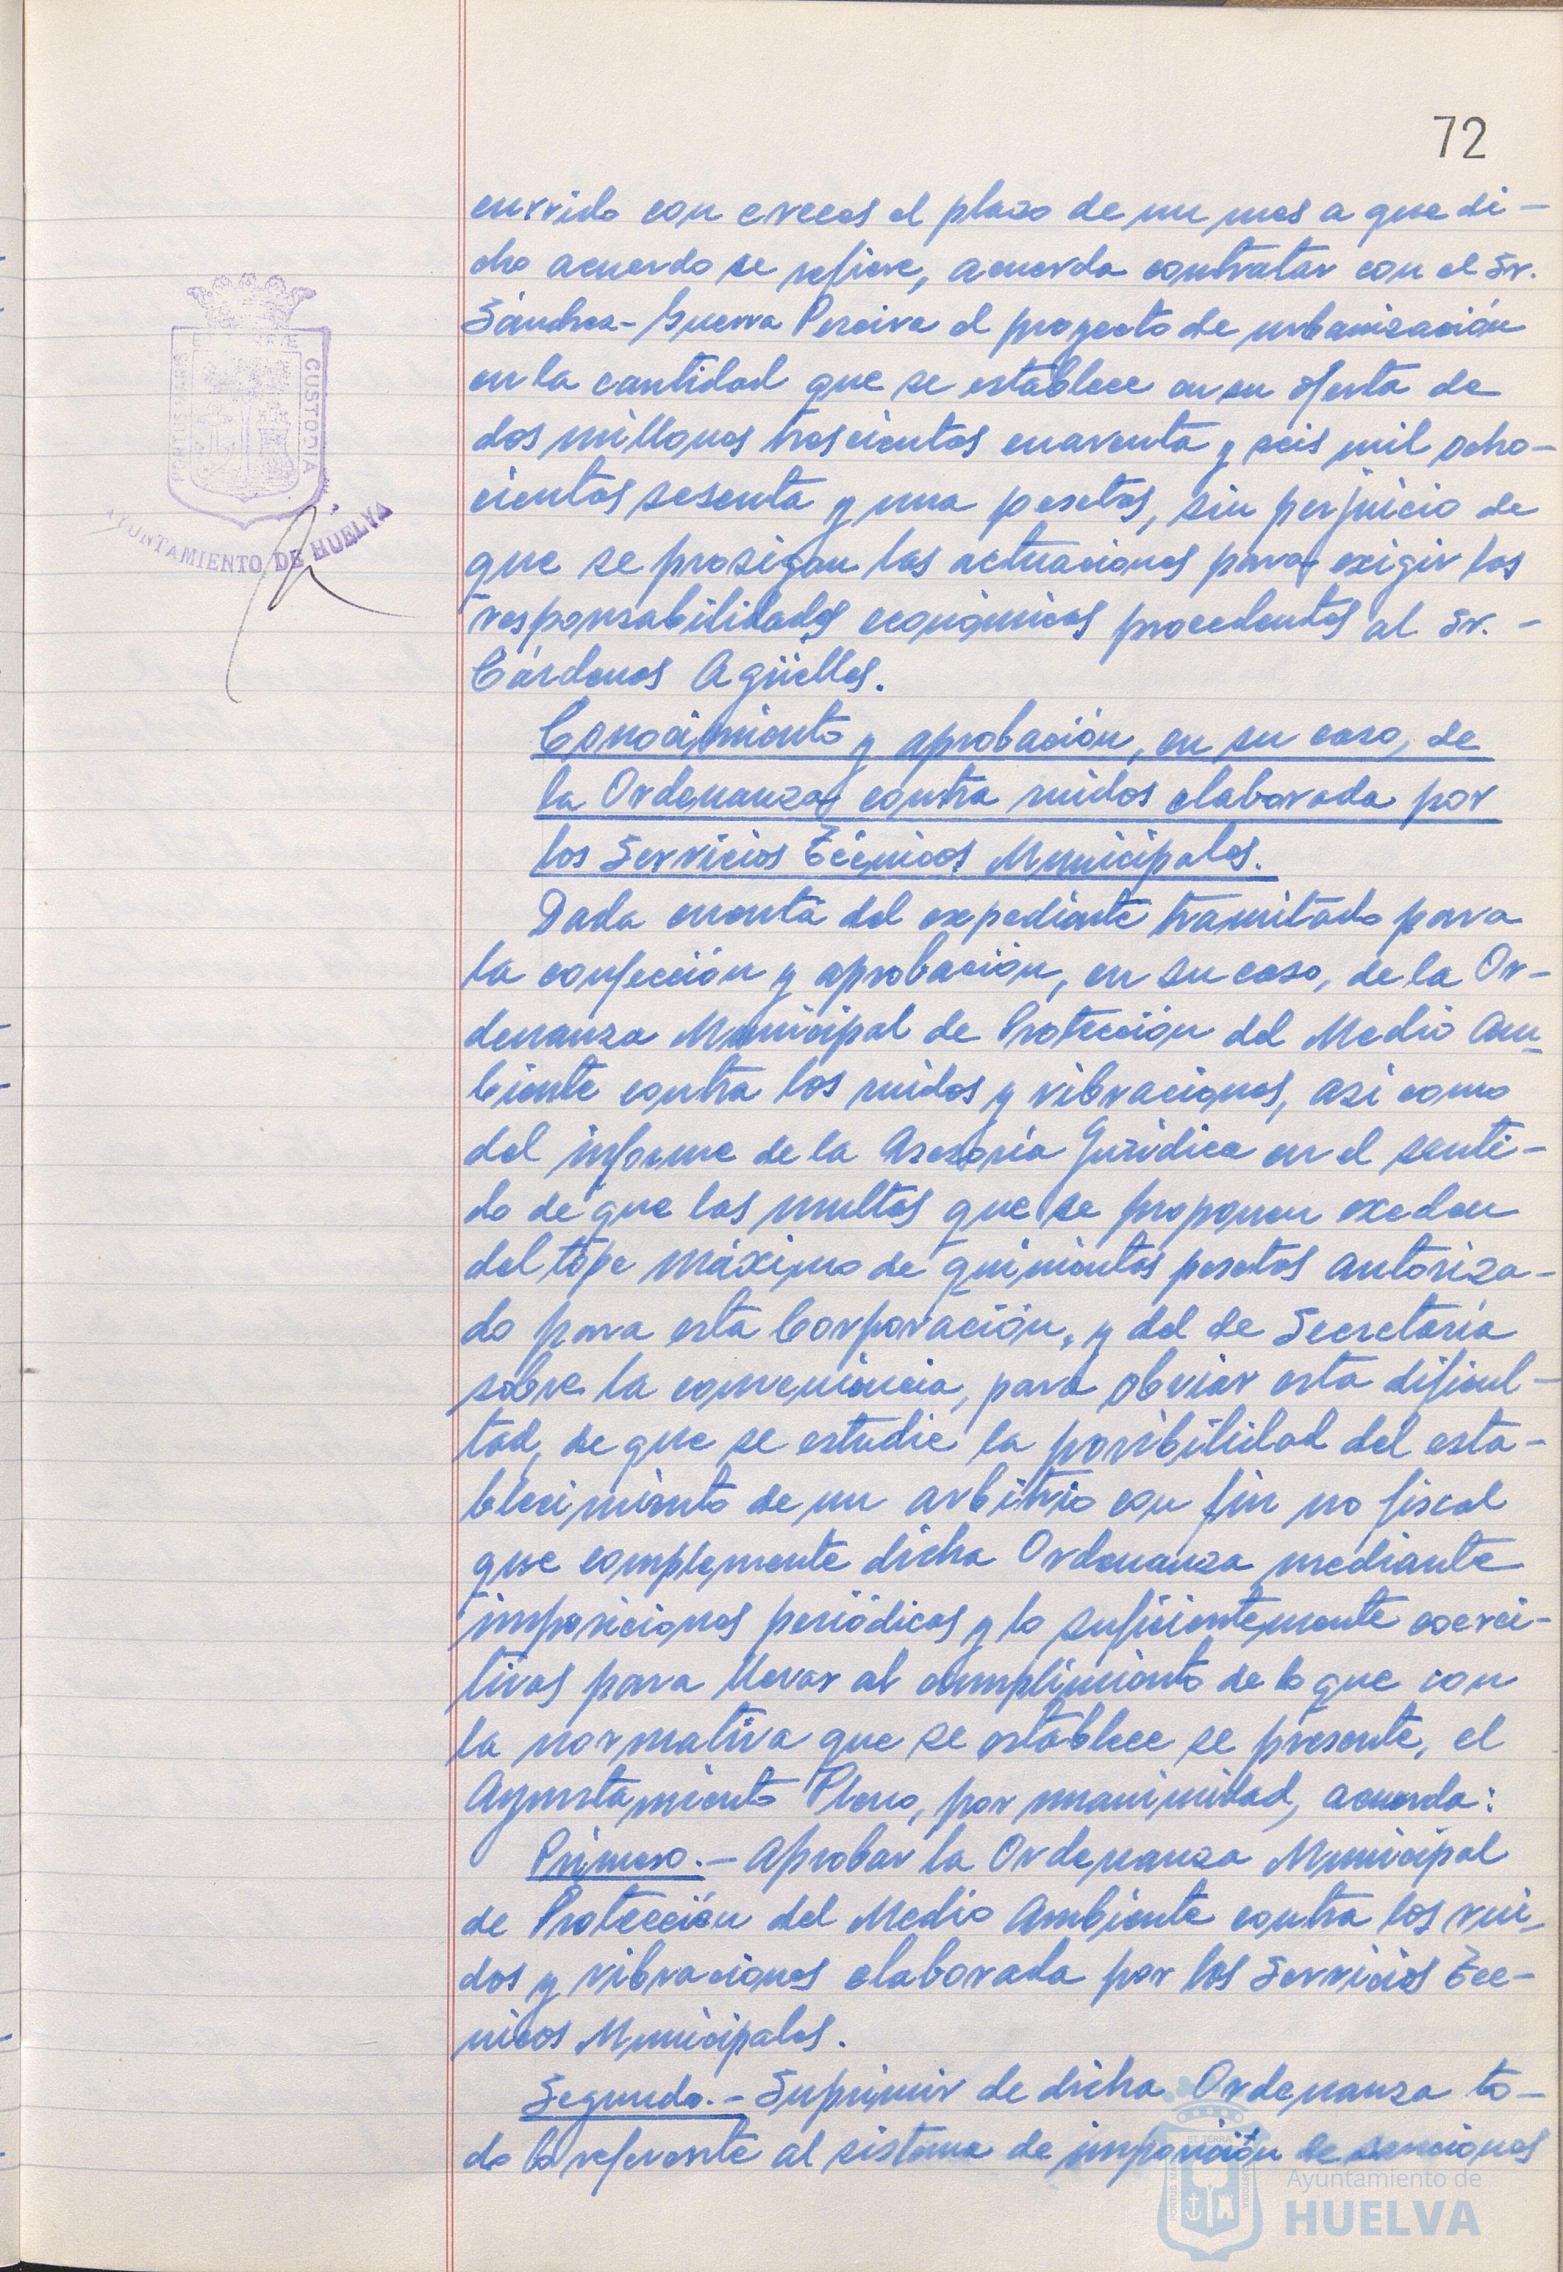 72
currido con creces el plazo de un mes a que di-
cho acuerdo se refiere, acuerda contratar con el Sr.
Sánchez-Guerra Pereira el proyecto de urbanización
en la cantidad que se establece en su oferta de
dos millones trescientas cuarenta y seis mil ocho-
cientas sesenta y una pesetas, sin perjuicio de
que se prosigan las actuaciones para exigir las
responsabilidades económicas procedentes al Sr. -
Cárdenas Agüelles.
Conocimiento y aprobación, en su caso, de
la Ordenanza contra ruidos elaborada por
los Servicios Técnicos Municipales.
Dada cuenta del expediente tramitado para
la confección y aprobación, en su caso, de la Or-
denanza Municipal de Protección del Medio Am-
biente contra los ruidos y vibraciones, asi como
del informe de la Asesoría Jurídica en el senti-
do de que las multas que se proponen exceden
del tope máximo de quinientas pesetas autoriza-
do para esta Corporación, y del de Secretaría
sobre la conveniencia, para obviar esta dificul-
tad, de que se estudie la posibilidad del esta-
blecimiento de un arbitrio con fin no fiscal
que complemente dicha Ordenanza mediante
imposiciones periódicas y lo suficientemente coerci-
tivas para llevar al cumplimiento de lo que con
la normativa que se establece se presente, el
Ayuntamiento Pleno, por unanimidad, acuerda:
Primero.- Aprobar la Ordenanza Municipal
de Protección del Medio Ambiente contra los rui-
dos y vibraciones elaborada por los Servicios Téc-
nicos Municipales.
Segundo.- Suprimir de dicha Ordenanza to-
do lo referente al sistema de imposición de sanciones
PORTUS MARIS
CUSTODIA
AYUNTAMIENTO DE HUELVA
Ayuntamiento de
HUELVA